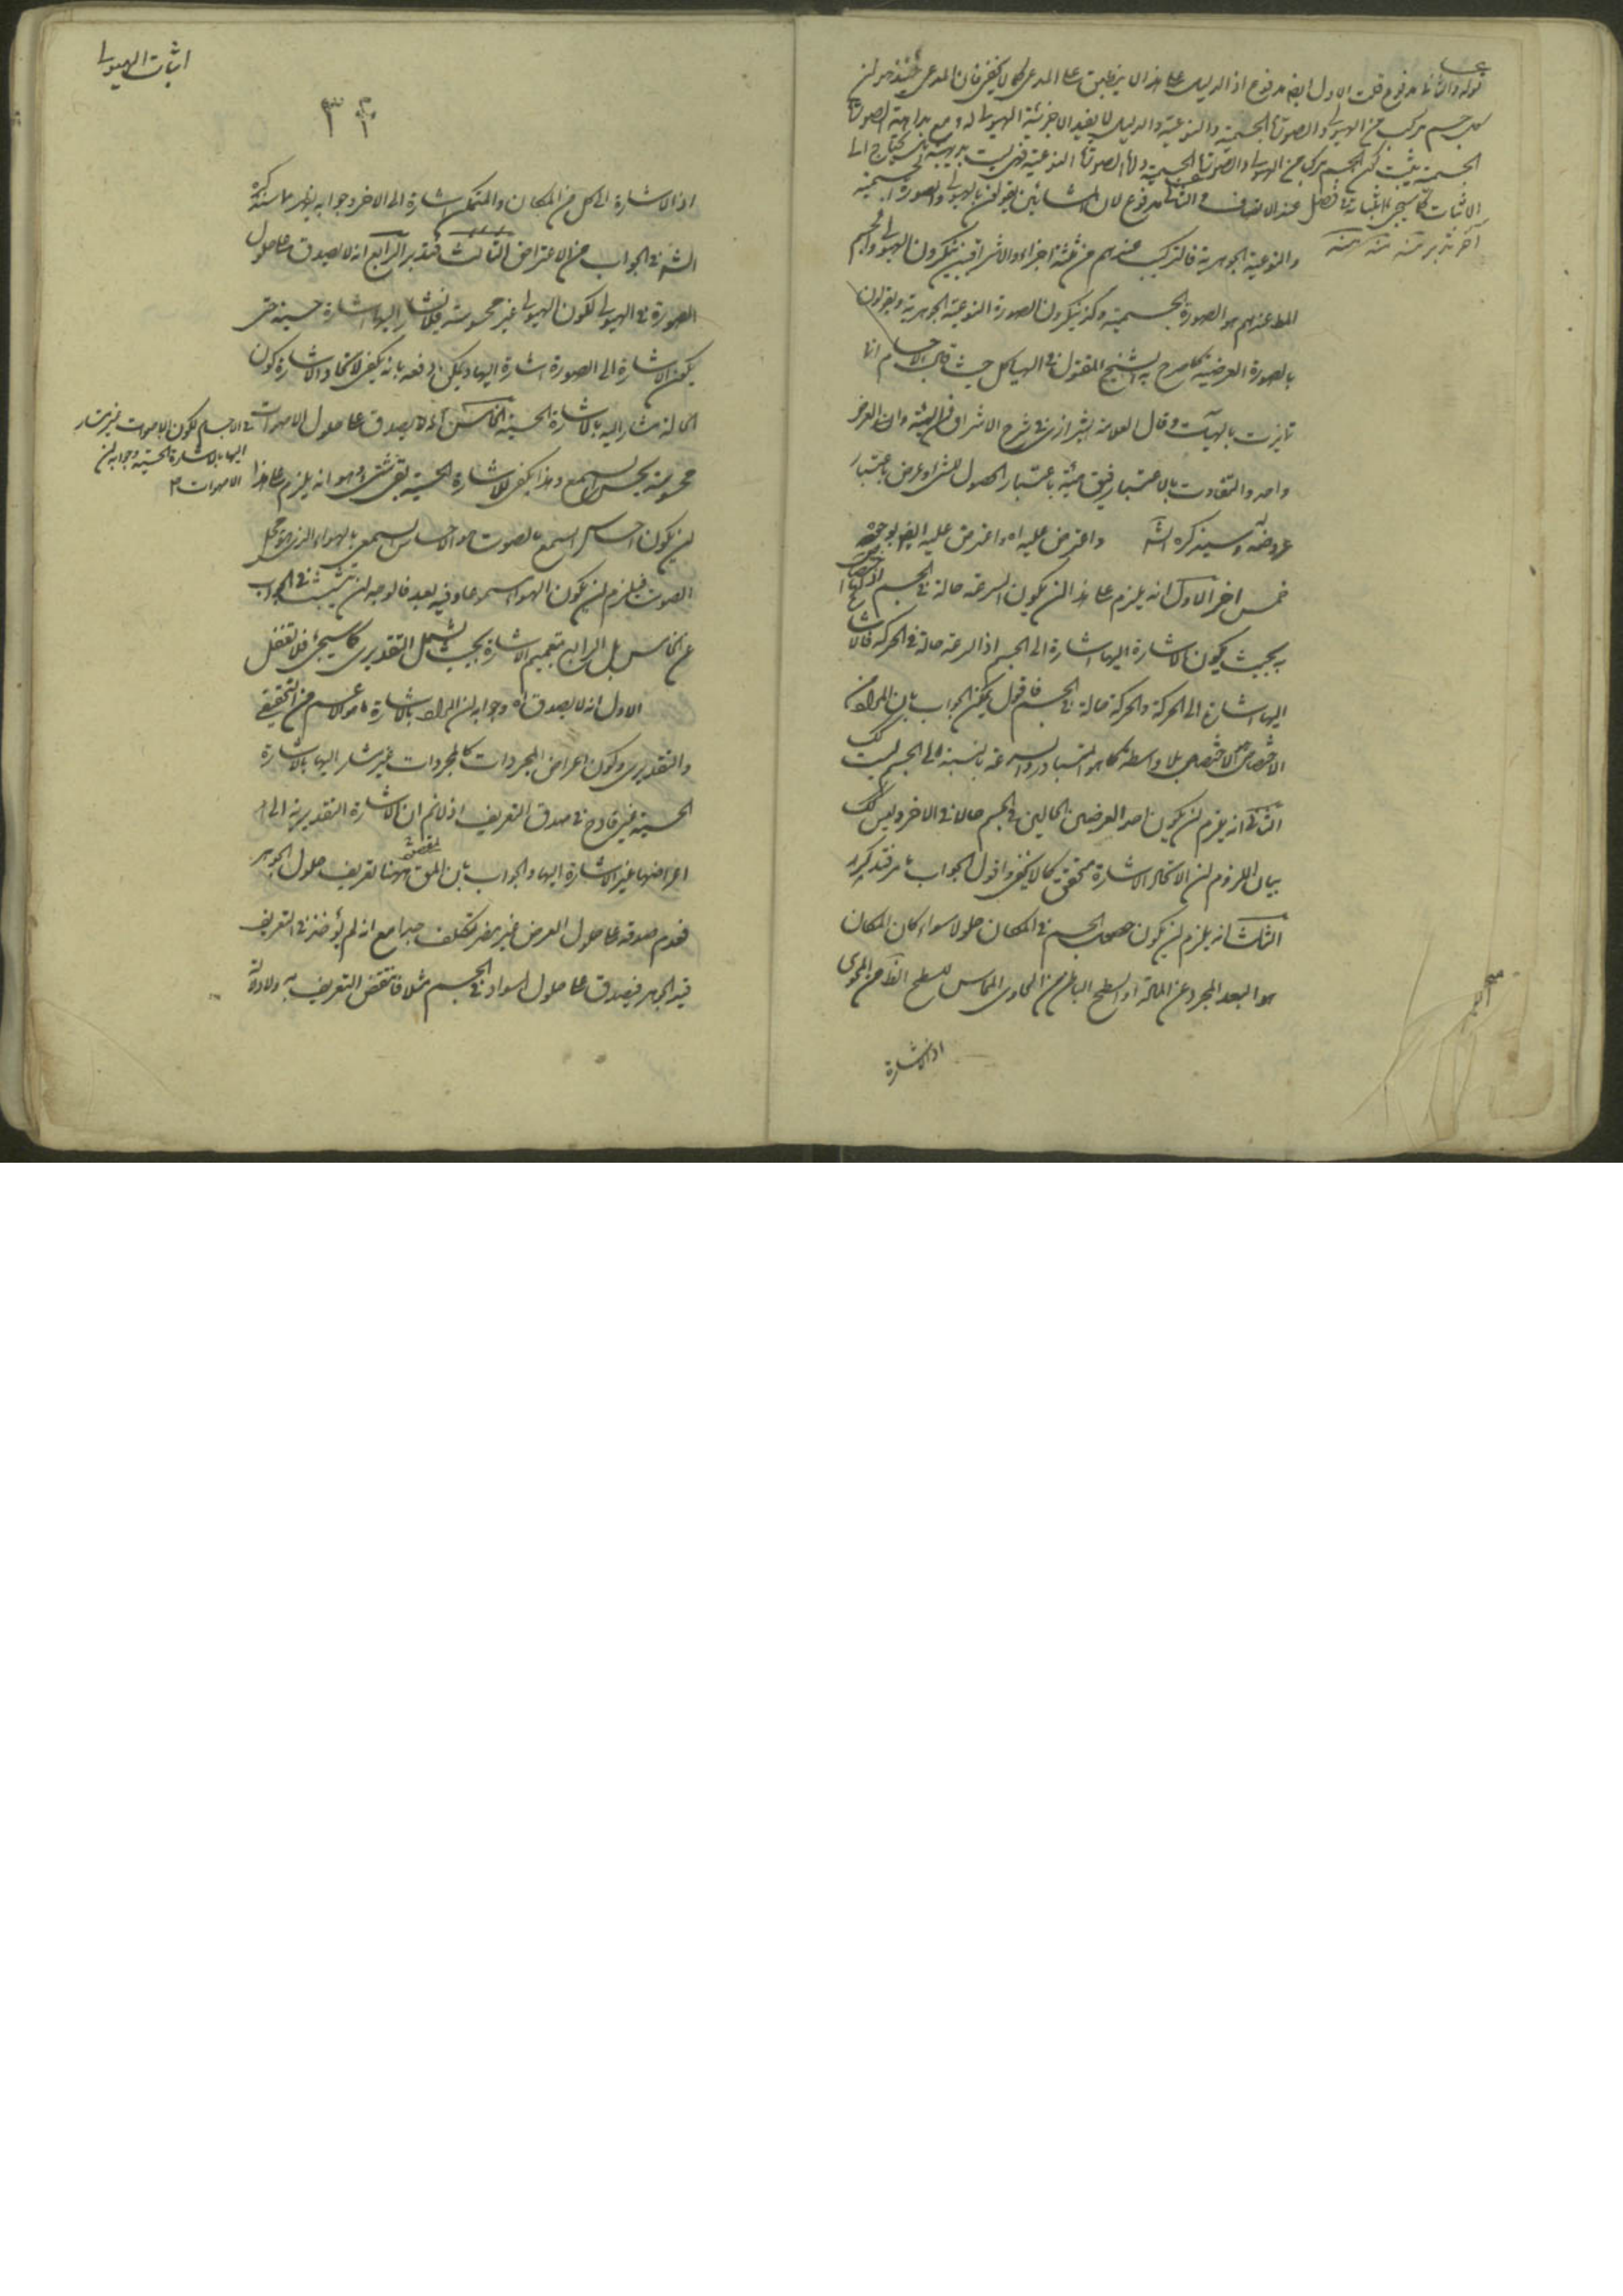 قوله والثانى مدفوع قلت الاول ايضا مدفوع اذ الدليل على هذا لا ينطبق على المدعى كما لا يخفى فان المدعى حينئذ هو ان
كل جسم مركب من الهيولى والصورة الجسمية والنوعية والدليل لا يفيد الا جزئية الهيولى له ومع بداهة الصورة
الجسمية يثبت كون الجسم مركبا من الهيولى والصورة الجسمية واما الصورة النوعية فهى ليست بديهية بل يحتاج الى
الاثبات كما سيجئ اثباته فى فصل عند الانصاف والثانى مدفوع لان المشائين يقولون بالهيولى والصورة الجسمية
آخر تدبر منه
والنوعية الجوهرية فالتركيب عندهم من ثلثة اجزاء والاشراقيين ينكرون الهيولى والجسم
المط عندهم هو الصورة الجسمية وكذا ينكرون الصورة النوعية الجوهرية ويقولون
بالصورة العرضية كما صرح به الشيخ المقتول فى الهياكل حيث قال الاجسام انما
تمايزت بالهيآت وقال العلامة الشيرازى فى شرح الاشراق الهيئة والعرض
واحد والتفاوت بالاعتبار فيق هيئة باعتبار الحصول للشئ وعرض باعتبار
عروضه له وسيذكره الشه واعترض عليه اه واعترض عليه ايضا بوجوه
خمس اخر الاول انه يلزم على هذا ان يكون السرعة حالة فى الجسم اذ لها اختصاص
به بحيث يكون الاشارة اليها اشارة الى الجسم اذ السرعة حالة فى الحركة فالاشارة
اليها اشارة الى الحركة والحركة حالة فى الجسم فاقول يمكن الجواب بان المراد من
الاختصاص الاختصاص بلا واسطة كما هو المتبادر والسرعة بالنسبة الى الجسم ليست كك
الثانى انه يلزم ان يكون احد العرضين الحالين فى الجسم حالا فى الاخر وليس كك
بيان اللزوم ان الاتحاد الاشارة متحقق كما لا يخفى واقول الجواب ما مر فتذكر
الثالث انه يلزم ان يكون حصول الجسم فى المكان حلولا سواء كان المكان
هو البعد المجرد عن المادة او السطح الباطن من الحاوى المماس للسطح الظ من المحوى
اذ الاشارة
اثبات الهيولى
٣٢
اذ الاشارة الى كل من المكان والمتمكن اشارة الى الاخر وجوابه يظهر مما سيذكره
الشه فى الجواب من الاعتراض الثالث فتدبر الرابع انه لا يصدق على حلول
الصورة فى الهيولى لكون الهيولى غير محسوسة فلا يشار اليها اشارة حسية حتى
يكون الاشارة الى الصورة اشارة اليها ويمكن دفعه بانه يكفى لاتحاد الاشارة كون
الحالة مشار اليه بالاشارة الحسية الخامس انه لا يصدق على حلول الاصوات
فى الاجسام لكون الاصوات غير مشار
اليها بالاشارة الحسية وجوابه ان
الاصوات
محسوسة بحس السمع وهذا يكفى للاشارة الحسية بقى شئ وهو انه يلزم على هذا
ان يكون احساس السمع بالصوت هو احساس السمع بالهواء الذى هو محل
الصوت فيلزم ان يكون الهواء مسموعا وفيه بعد فالوجه ان يتشبث فى الجواب
عن الخامس بل الرابع بتعميم الاشارة بحيث يشمل التقديرى كما سيجئ فلا تغفل
الاول انه لا يصدق اه وجوابه ان المراد بالاشارة ما هو الاعم من التحقيقى
والتقديرى وكون اعراض المجردات كالمجردات غير مشار اليها بالاشارة
الحسية غير قادح فى صدق التعريف اذ لا نم ان الاشارة التقديرية الى
اعراضها غير الاشارة اليها والجواب بان المق ههنا تعريف حلول الجوهر
فعدم صدقه على حلول العرض غير مضر تكلف جدا مع انه لم يؤخذ فى التعريف
قيد الجوهر فيصدق على حلول السواد فى الجسم مثلا فانتقض التعريف به